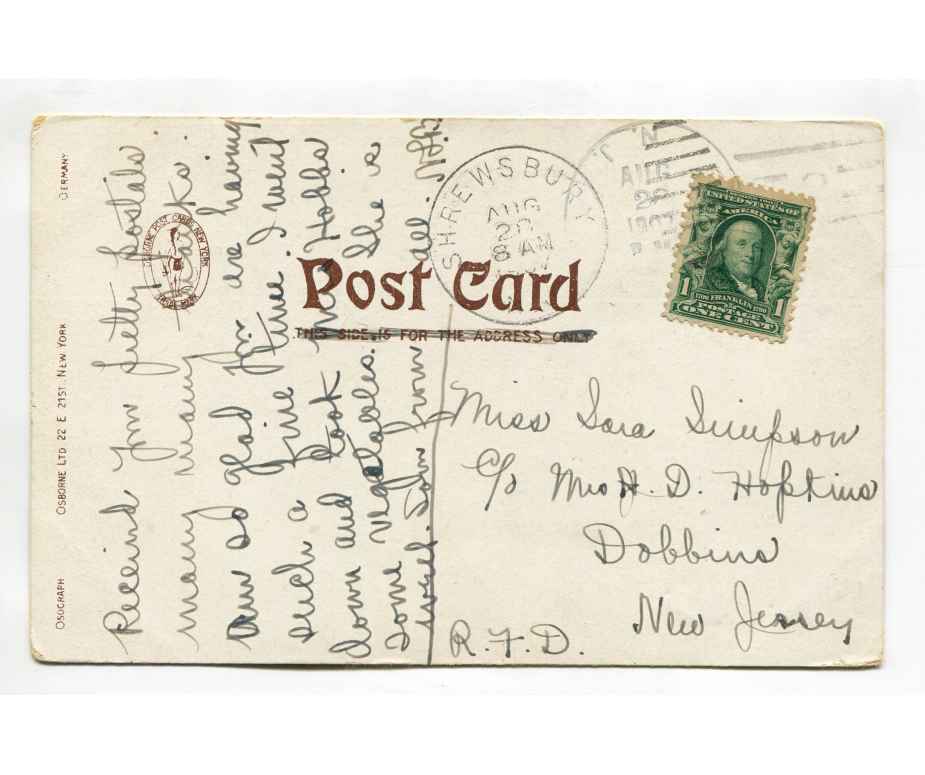 OSOGRAPH
OSBORNE LTD 22 E 21ST. NEW YORK
GERMANY
OSBORNE POST CARDS NEW YORK
Post Card
THIS SIDE IS FOR THE ADDRESS ONLY
SHREWSBURY
AUG
8 AM
N. J.
AUG
22
1907
UNITED STATES OF
AMERICA
1 1
FRANKLIN
POSTAGE
ONE CENT
pretty postals
many many thanks
Am so glad you are having
such a fine time. I went
down and took Mrs Hobbs
some vegetables. She is
well. John from all.
Miss Sara Simpson
c/o Mrs H. D. Hopkins
Dobbins
New Jersey
R.F.D.